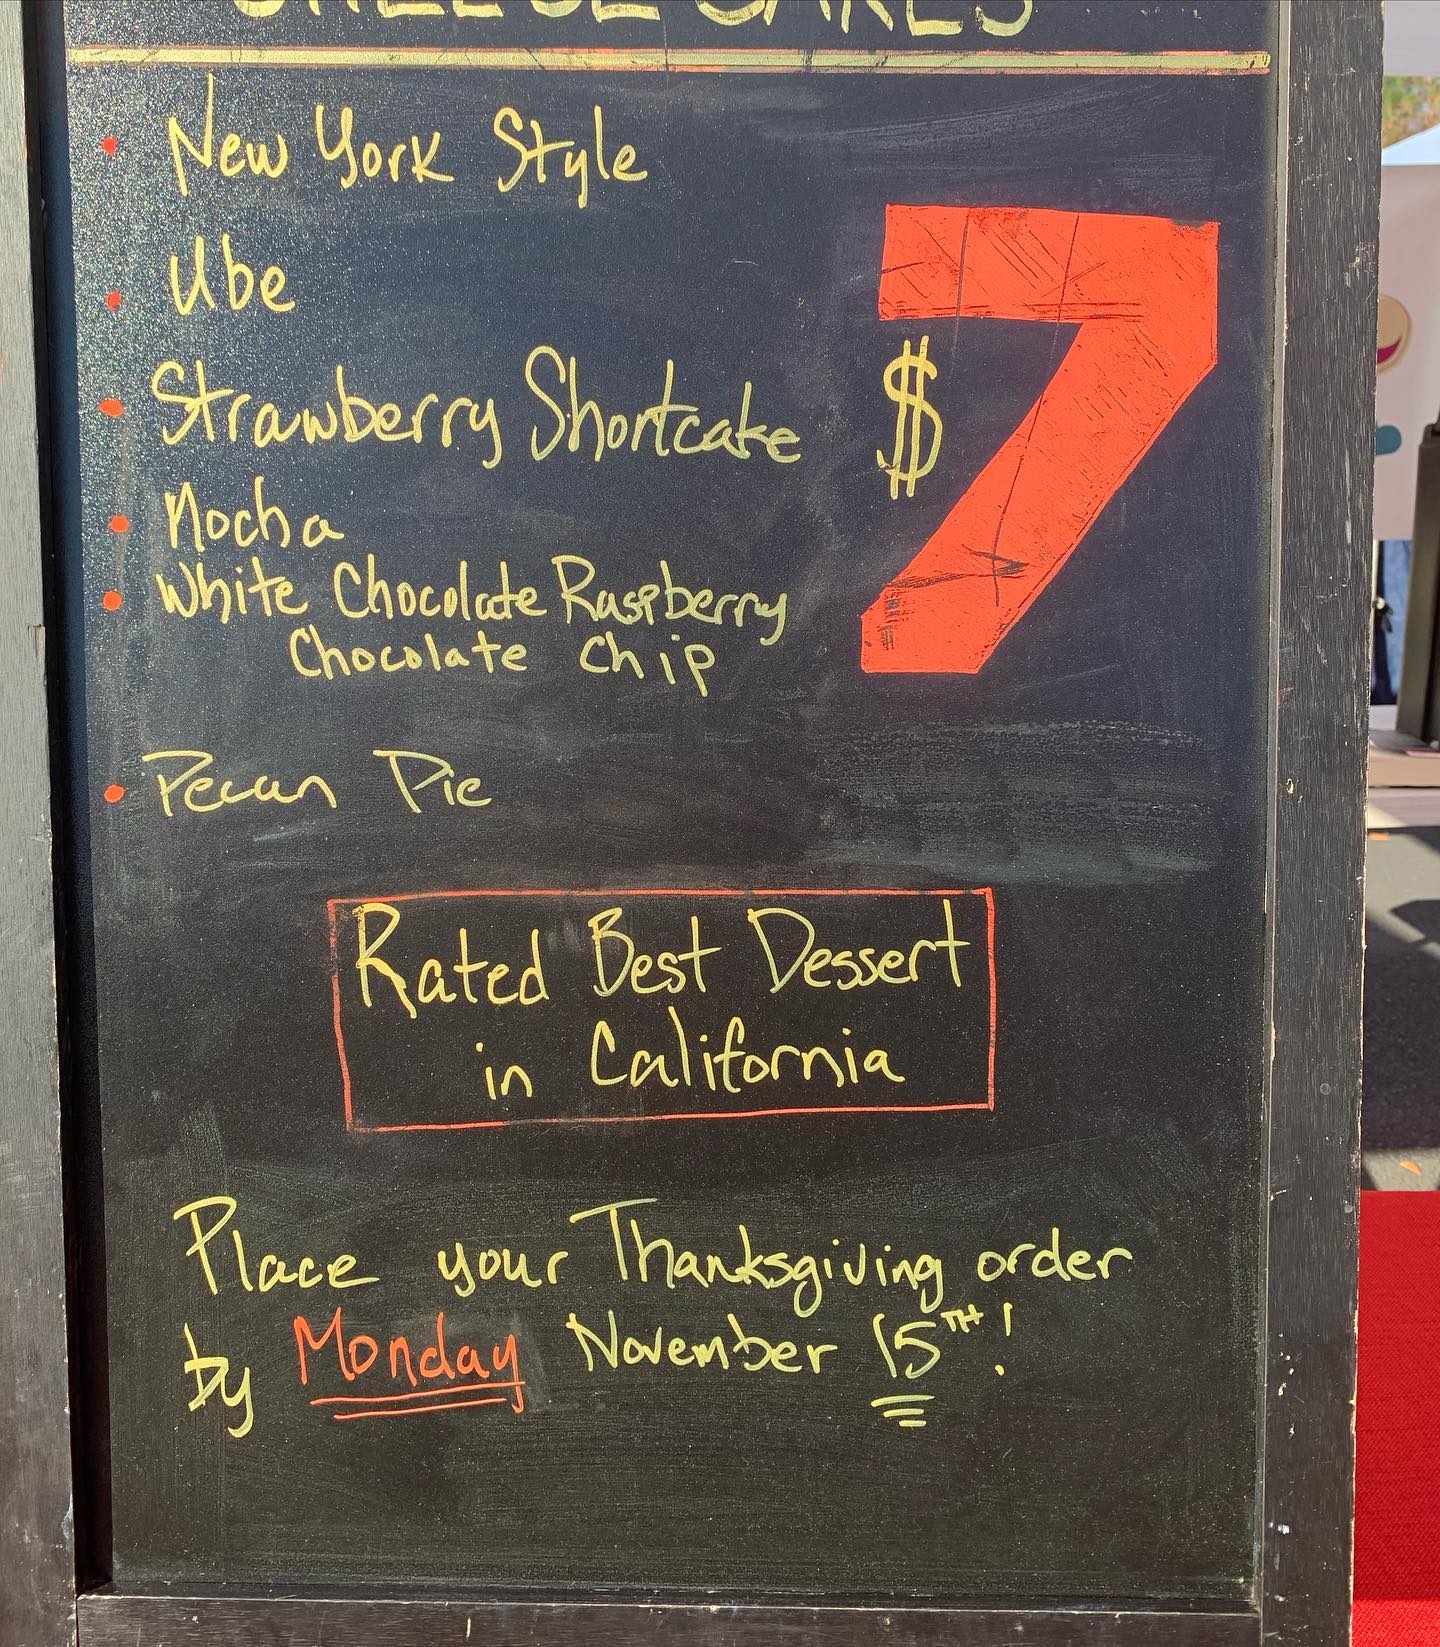 CHEESECAKES
• New York Style
• Ube
• Strawberry Shortcake
$7
• Mocha
• White Chocolate Raspberry
Chocolate Chip
• Pecan Pie
Rated Best Dessert
in California
Place your Thanksgiving order
by Monday November 15TH!